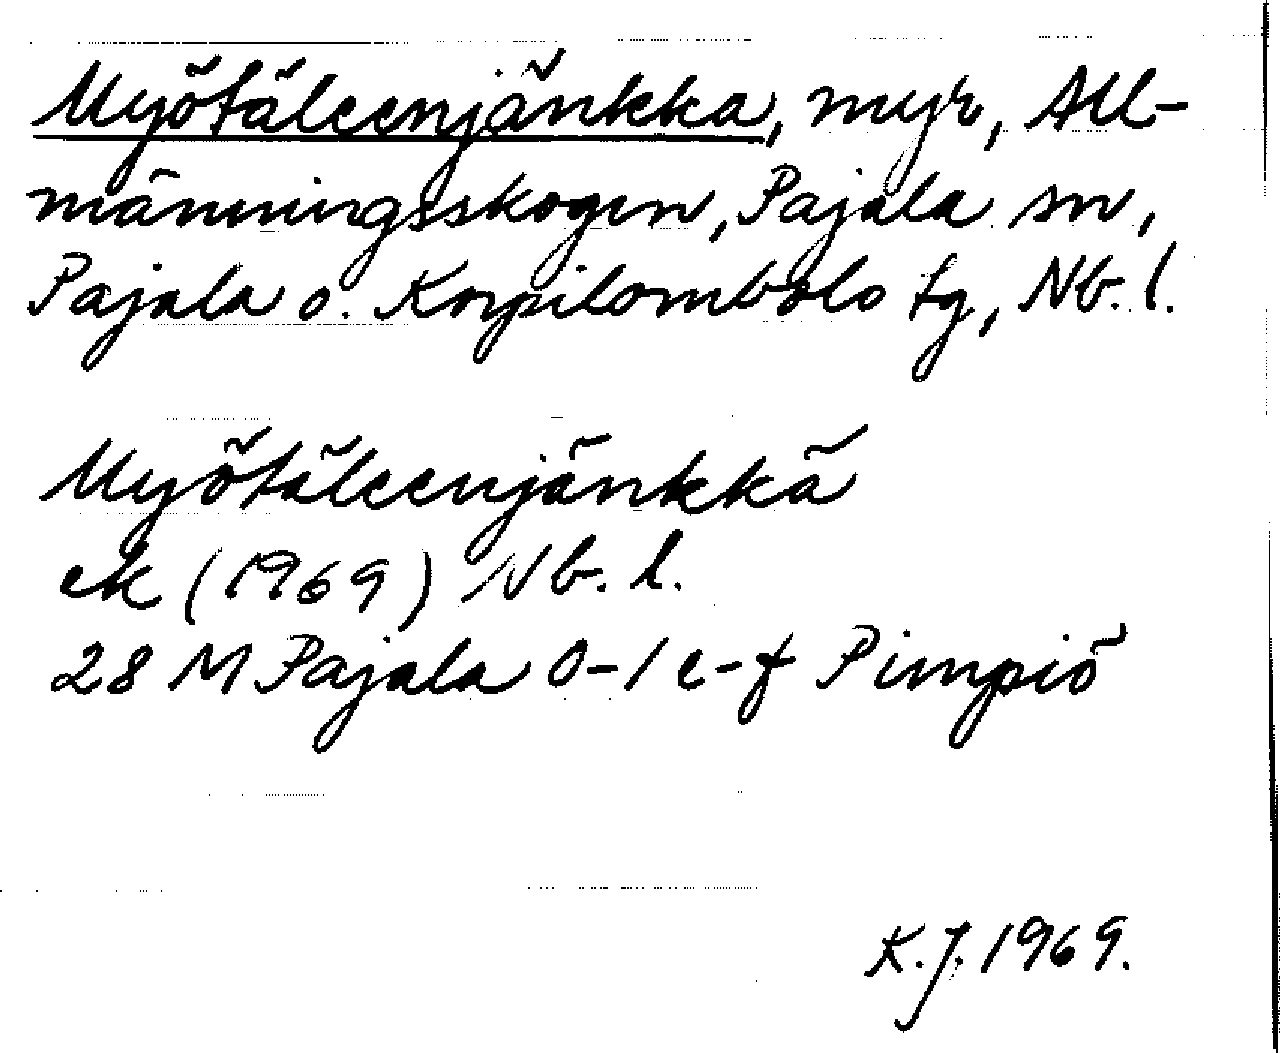 Myötäleenjänkka, myr, All-
männingsskogen, Pajala sn,
Pajala o. Korpilombolo tg, Nb. l.
Myötäleenjänkkä
ek (1969) Nb. l.
28 M Pajala 0-1 e-f Pimpiö
K.J. 1969.